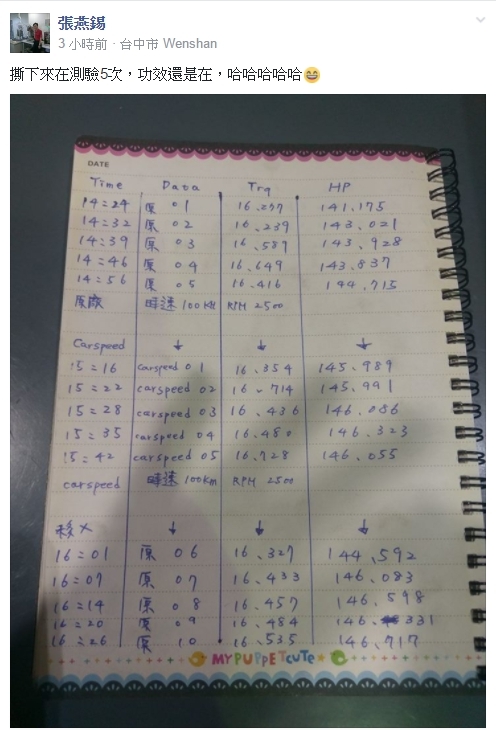 張燕錫
3 小時前 · 台中市 Wenshan
撕下來在測驗5次，功效還是在，哈哈哈哈哈😄
DATE
Time Data Trq HP
14:24 原 01 16.237 141.175
14:32 原 02 16.239 143.021
14:39 原 03 16.587 143.928
14:46 原 04 16.649 143.837
14:56 原 05 16.416 144.715
原廠 時速 100KM RPM 2500
Carspeed ↓ ↓ ↓
15:16 carspeed 01 16.354 145.989
15:22 carspeed 02 16.714 145.991
15:28 carspeed 03 16.436 146.086
15:35 carspeed 04 16.480 146.323
15:42 carspeed 05 16.728 146.055
carspeed 時速 100km RPM 2500
↓ ↓ ↓
16:01 原 06 16.327 144.592
16:07 原 07 16.433 146.083
16:14 原 08 16.457 146.598
16:20 原 09 16.484 146.331
16:26 原 10 16.535 146.717
MYPUPPETCUTE